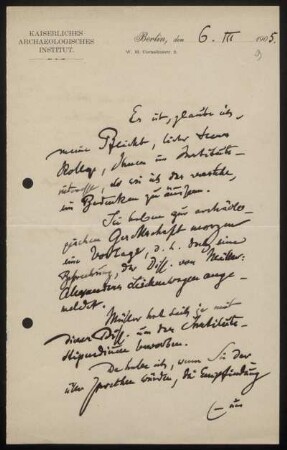 KAISERLICHES
ARCHAEOLOGISCHES
INSTITUT.
Berlin, den 6. III 1905.
W. 10, Corneliusstr. 2.
Es ist, glaube ich,
meine Pflicht, lieber Herr
Kollege, Ihnen im Instituts-
interesse, so wie ich das verstehe,
ein Bedenken zu äussern.
Sie haben zur archäolo-
gischen Gesellschaft morgen
eine Vorlage, d. h. doch eine
Besprechung, der Diss. von Müller:
Alexanders Leichenwagen ange-
meldet.
Müller hat sich ja mit
dieser Diss. um das Instituts-
stipendium beworben.
Da habe ich, wenn Sie da-
über sprechen würden, die Empfindung
aus